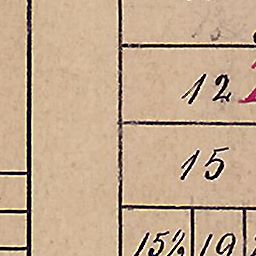 12
15
15½ 19